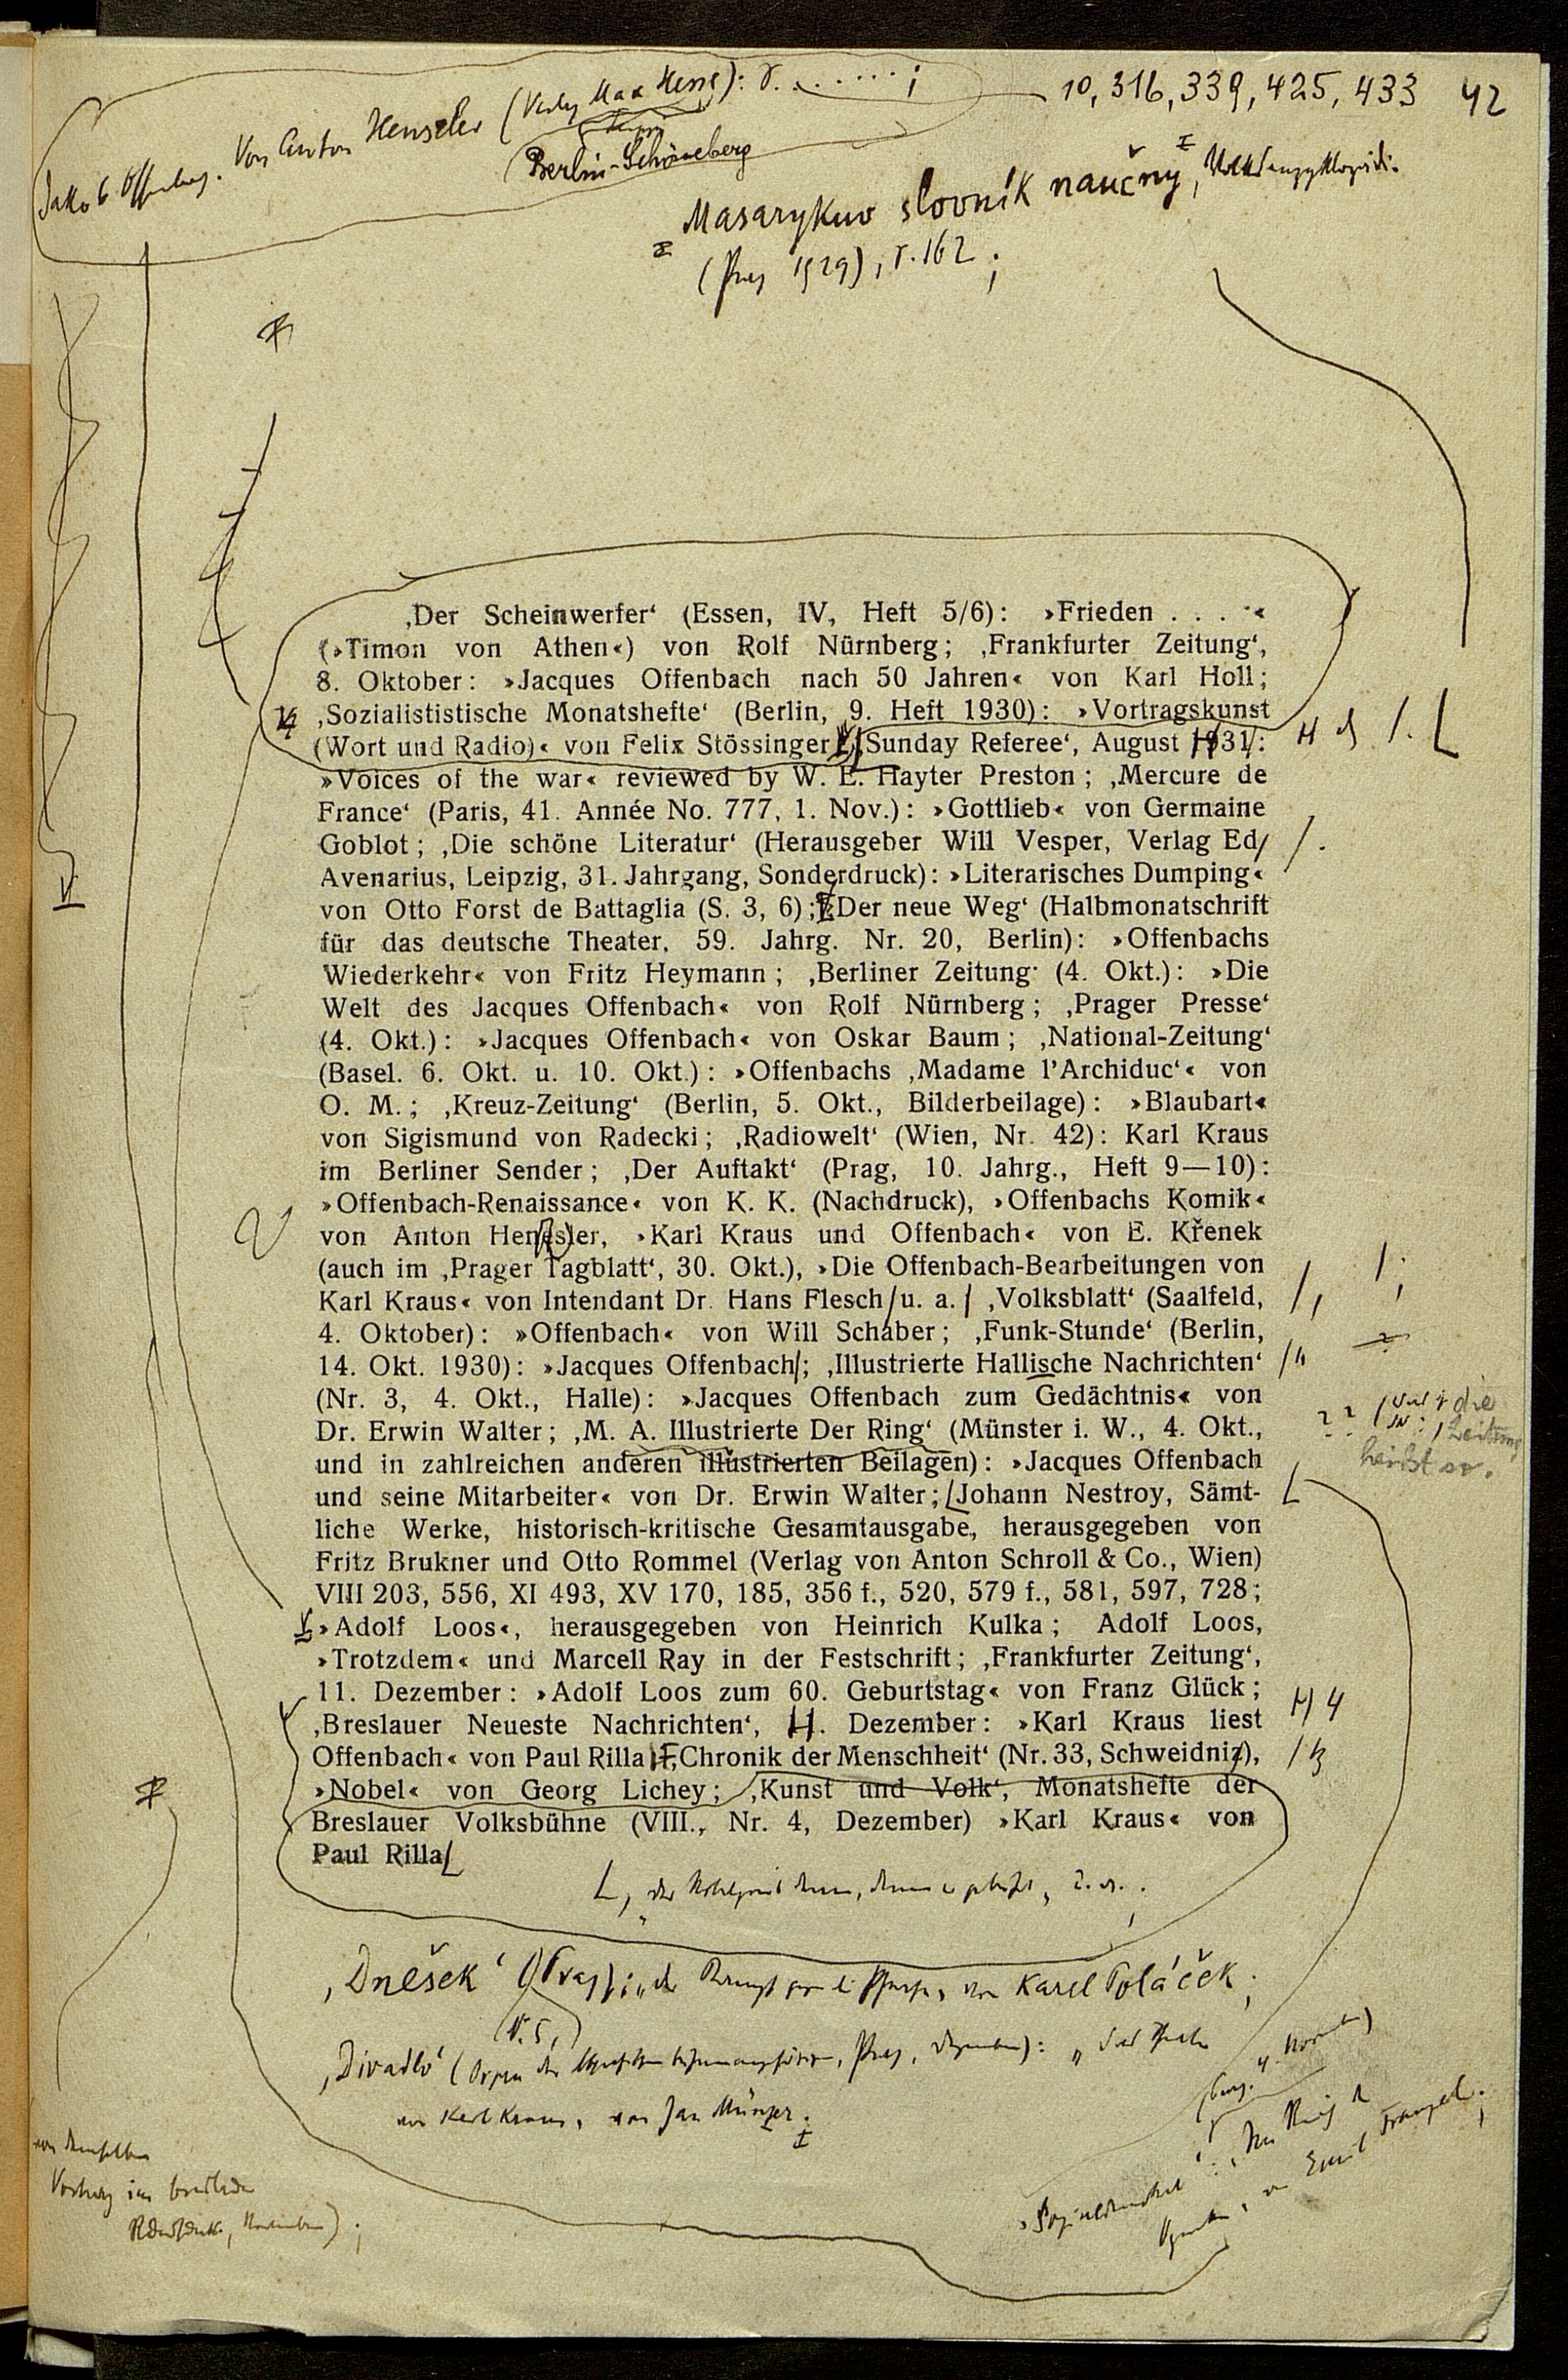 10, 316, 339, 425, 433 42
Von Anton Henseler (Verlag Max Hesse): S. . . . . . . ;
Berlin-Schöneberg
Masarykuv slovník naučny,
(Prag 1929), S. 162 ;
‚Der Scheinwerfer‘ (Essen, IV, Heft 5/6): »Frieden . . . .«
(»Timon von Athen«) von Rolf Nürnberg; ‚Frankfurter Zeitung‘,
8. Oktober: »Jacques Offenbach nach 50 Jahren« von Karl Holl;
‚Sozialististische Monatshefte‘ (Berlin, 9. Heft 1930): »Vortragskunst
(Wort und Radio)« von Felix Stössinger ‚Sunday Referee‘, August 1931:
»Voices of the war« reviewed by W. E. Hayter Preston; ‚Mercure de
France‘ (Paris, 41. Année No. 777, 1. Nov.): »Gottlieb« von Germaine
Goblot; ‚Die schöne Literatur‘ (Herausgeber Will Vesper, Verlag Ed
Avenarius, Leipzig, 31. Jahrgang, Sonderdruck): »Literarisches Dumping«
von Otto Forst de Battaglia (S. 3, 6); ‚Der neue Weg‘ (Halbmonatschrift
für das deutsche Theater, 59. Jahrg. Nr. 20, Berlin): »Offenbachs
Wiederkehr« von Fritz Heymann; ‚Berliner Zeitung‘ (4. Okt.): »Die
Welt des Jacques Offenbach« von Rolf Nürnberg; ‚Prager Presse‘
(4. Okt.): »Jacques Offenbach« von Oskar Baum; ‚National-Zeitung‘
(Basel. 6. Okt. u. 10. Okt.): »Offenbachs ‚Madame l'Archiduc‘« von
O. M.; ‚Kreuz-Zeitung‘ (Berlin, 5. Okt., Bilderbeilage): »Blaubart«
von Sigismund von Radecki; ‚Radiowelt‘ (Wien, Nr. 42): Karl Kraus
im Berliner Sender; ‚Der Auftakt‘ (Prag, 10. Jahrg., Heft 9—10):
»Offenbach-Renaissance« von K. K. (Nachdruck), »Offenbachs Komik«
von Anton Henesler, »Karl Kraus und Offenbach« von E. Křenek
(auch im ‚Prager Tagblatt‘, 30. Okt.), »Die Offenbach-Bearbeitungen von
Karl Kraus« von Intendant Dr. Hans Flesch u. a. ‚Volksblatt‘ (Saalfeld,
4. Oktober): »Offenbach« von Will Schaber; ‚Funk-Stunde‘ (Berlin,
14. Okt. 1930): »Jacques Offenbach; ‚Illustrierte Hallische Nachrichten‘
(Nr. 3, 4. Okt., Halle): »Jacques Offenbach zum Gedächtnis« von
Dr. Erwin Walter; ‚M. A. Illustrierte Der Ring‘ (Münster i. W., 4. Okt.,
?? die Zeitung
heißt so.
und in zahlreichen anderen illustrierten Beilagen): »Jacques Offenbach
und seine Mitarbeiter« von Dr. Erwin Walter; Johann Nestroy, Sämt-
liche Werke, historisch-kritische Gesamtausgabe, herausgegeben von
Fritz Brukner und Otto Rommel (Verlag von Anton Schroll & Co., Wien)
VIII 203, 556, XI 493, XV 170, 185, 356 f., 520, 579 f., 581, 597, 728;
»Adolf Loos«, herausgegeben von Heinrich Kulka; Adolf Loos,
»Trotzdem« und Marcell Ray in der Festschrift; ‚Frankfurter Zeitung‘,
11. Dezember: »Adolf Loos zum 60. Geburtstag« von Franz Glück;
‚Breslauer Neueste Nachrichten‘, . Dezember: »Karl Kraus liest
Offenbach« von Paul Rilla ‚Chronik der Menschheit‘ (Nr. 33, Schweidniz),
»Nobel« von Georg Lichey; ‚Kunst und Volk‘, Monatshefte der
Breslauer Volksbühne (VIII., Nr. 4, Dezember) »Karl Kraus« von
Paul Rilla
‚Dnešek‘ (Prag): von Karel Poláček;
‚Divadlo‘ (Organ der Prag, Dezember): „Das Theater
von Karl Kraus“ von Jan Münzer.
von Emil Franzel;
von demselben
Vortrag im Breslauer
Rundfunk, November);